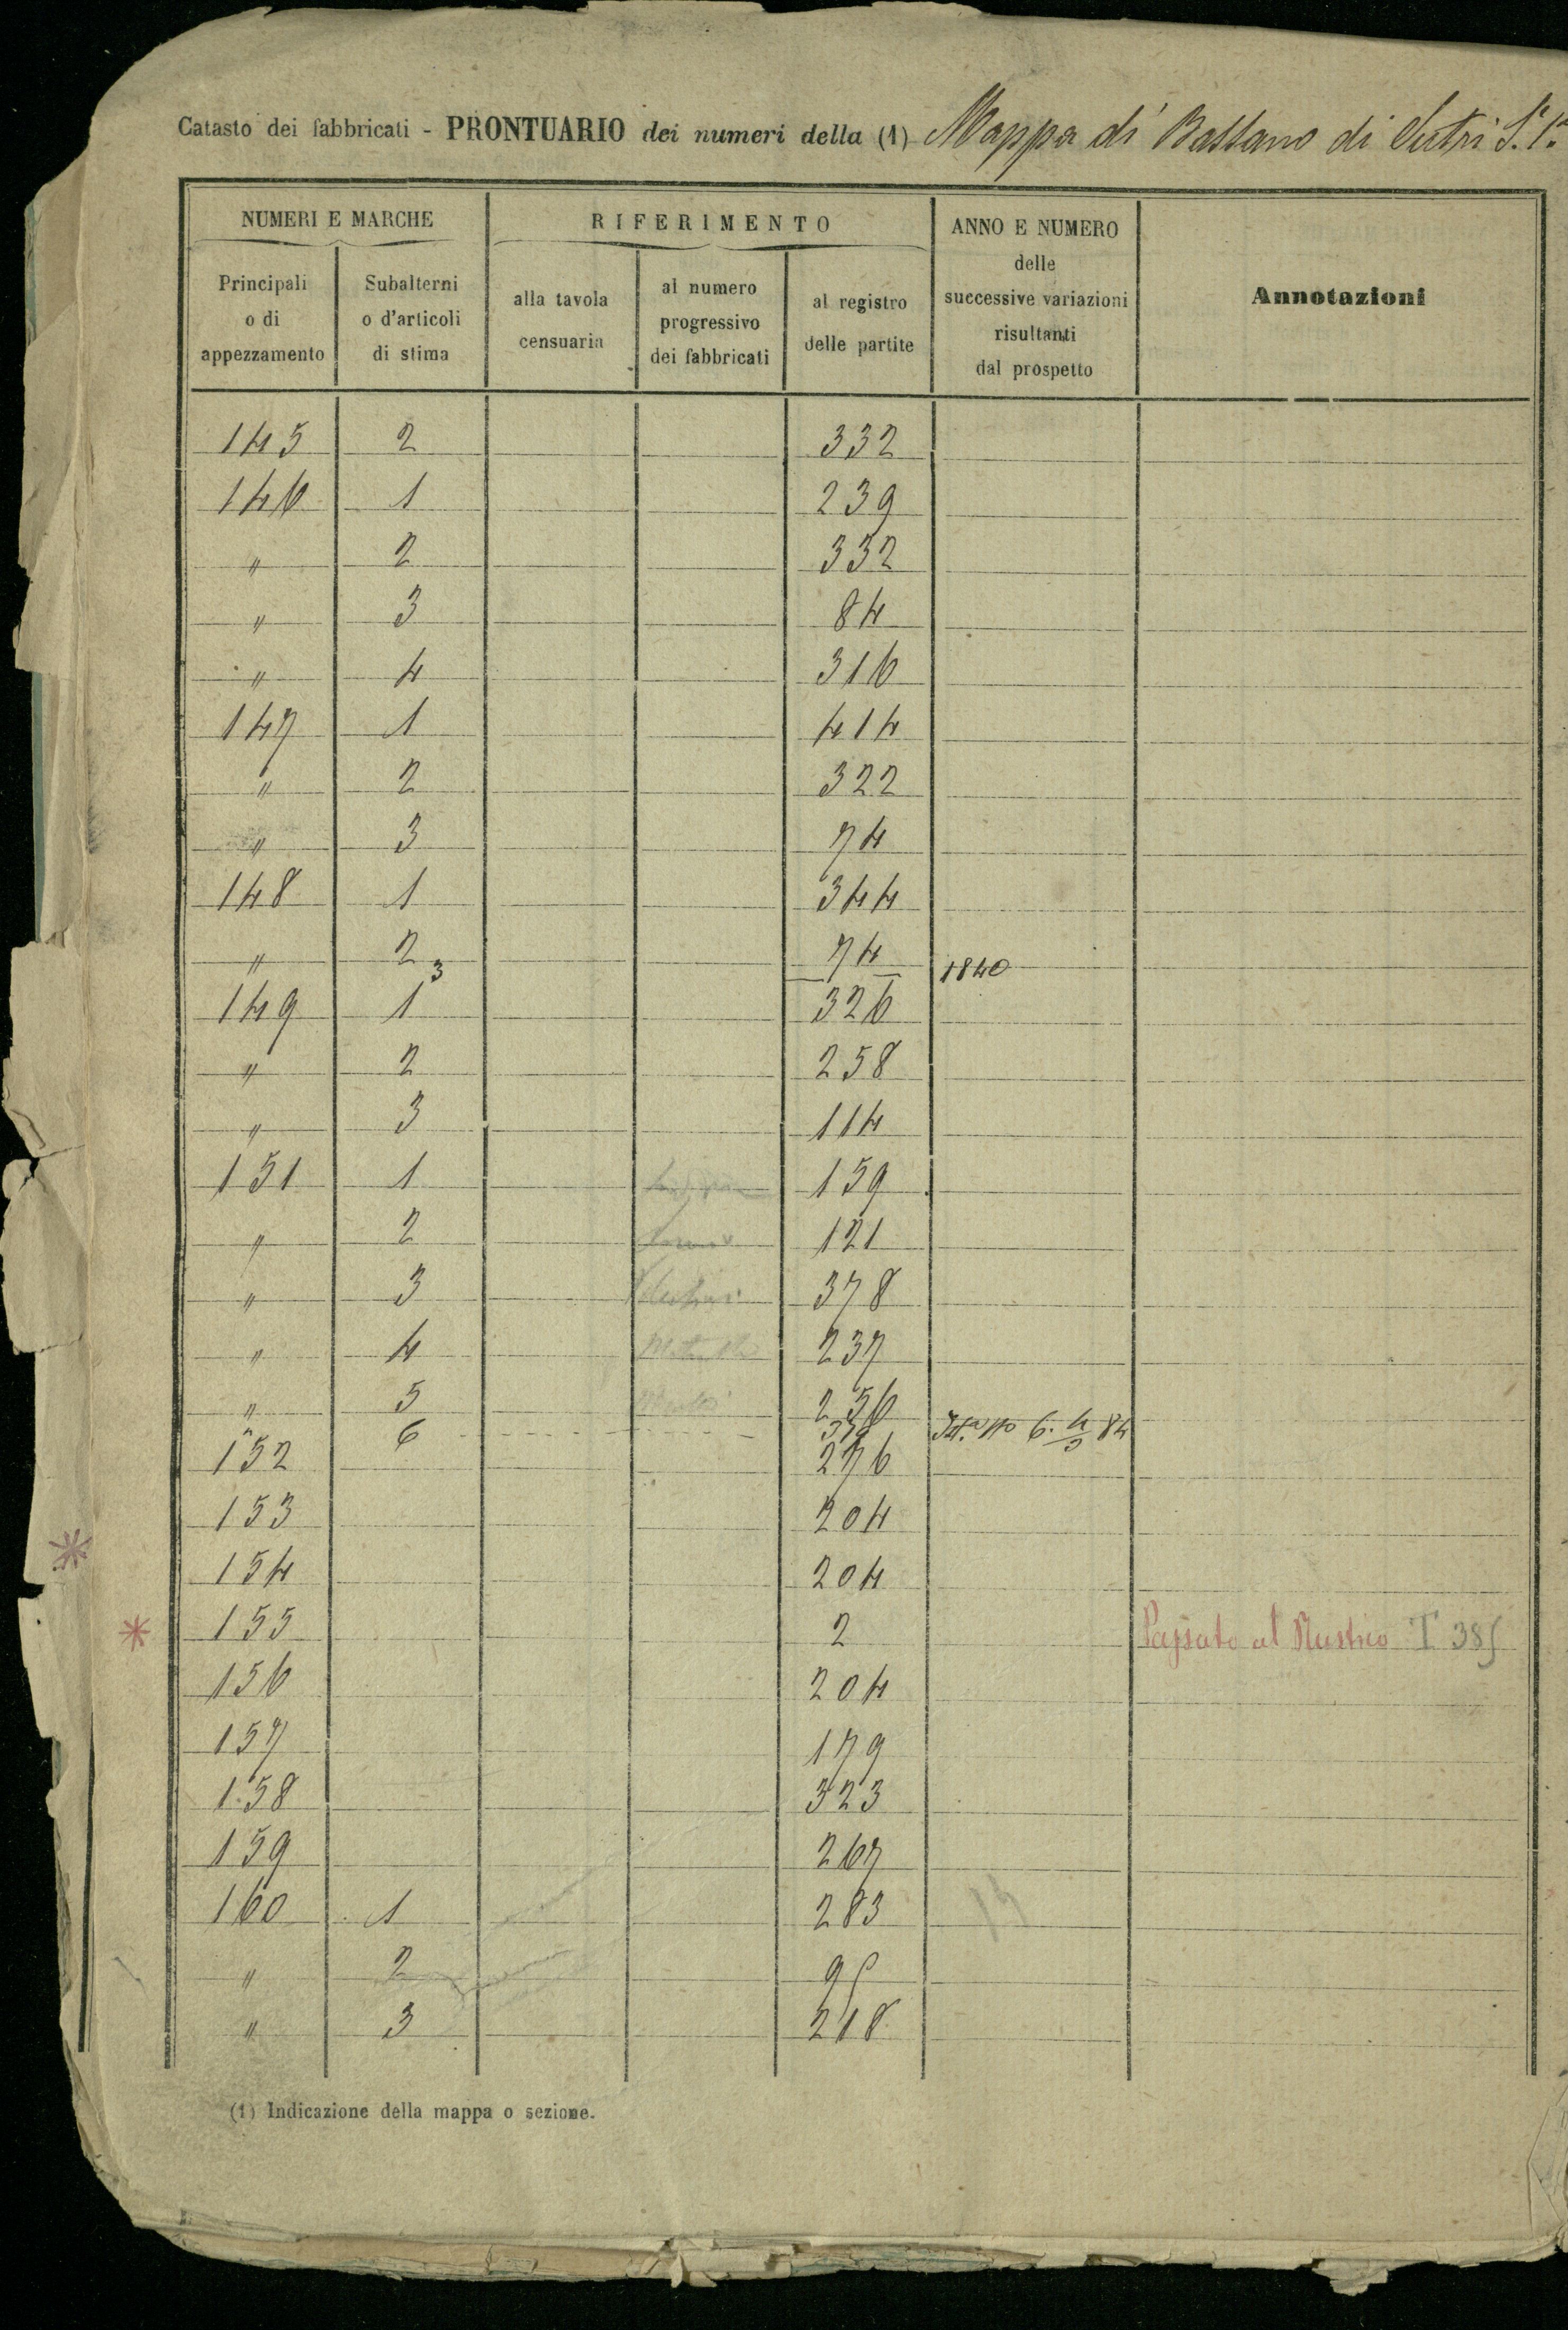 Catasto dei fabbricati - PRONTUARIO dei numeri della (1) Mappa di Bassano di Sutri S. 1ª
NUMERI E MARCHE
RIFERIMENTO
ANNO E NUMERO
delle
successive variazioni
risultanti
dal prospetto
Annotazioni
Principali
o di
appezzamento
Subalterni
o d'articoli
di stima
alla tavola
censuaria
al numero
progressivo
dei fabbricati
al registro
delle partite
145 2 332
146 1 239
" 2 332
" 3 84
" 4 316
147 1 414
" 2 322
" 3 74
148 1 344
" 2 74
3 1840
149 1 326
" 2 258
" 3 114
151 1 159
" 2 121
" 3 378
" 4 237
" 5 256
" 6 378 6. 84
152 276
153 204
154 204
155 2 Passato al Rustico T 385
156 204
157 179
158 323
159 267
160 1 283
" 2 95
" 3 218
(1) Indicazione della mappa o sezione.